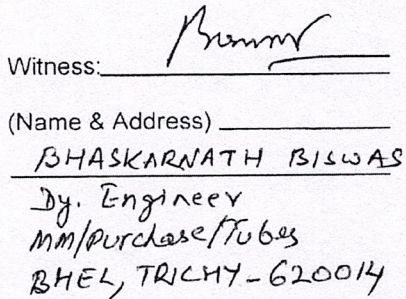 Witness:
(Name & Address)
BHASKARNATH BISWAS
Dy. Engineer
MM/Purchase/Tubes
BHEL, TRICHY - 620014